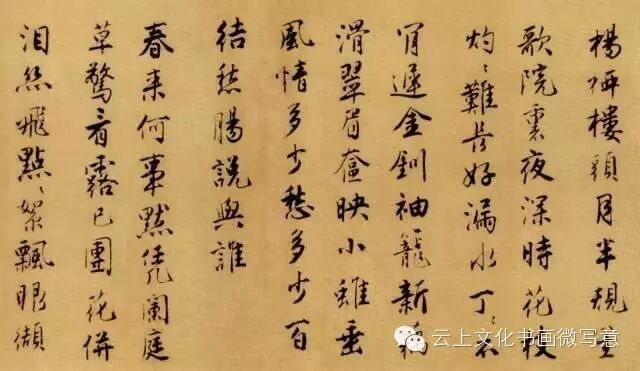 楊柳樓頭月半規笙
歌院裏夜深時花枝
灼〻難長好漏水丁〻不
肯遲金釧袖籠新藕
滑翠眉奩映小蛾垂
風情多少愁多少百
結愁腸說與誰
春来何事默凭闌庭
草驚看露已團花併
泪絲飛點〻絮飄眼纈
云上文化书画微写意